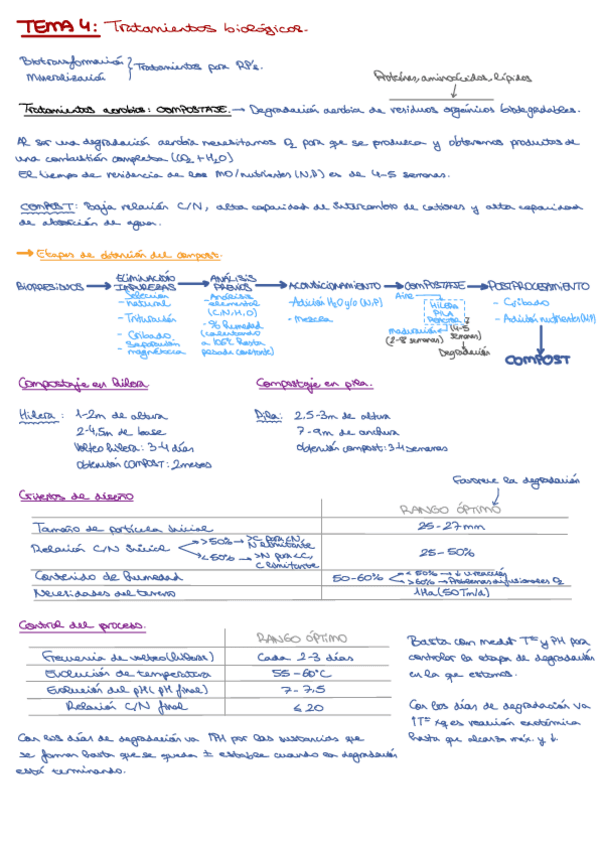 TEMA 4: Tratamientos biológicos.
Biotransformación
Mineralización
Tratamientos para RP's.
Proteínas, aminoácidos, lípidos
Tratamientos aerobios: COMPOSTAJE. → Degradación aerobia de residuos orgánicos biodegradables.
Al ser una degradación aerobia necesitamos O2 para que se produzca y obtenemos productos de
una combustión completa (CO2 + H2O)
El tiempo de residencia de los MO/nutrientes (N,P) es de 4-5 semanas.
COMPOST: Baja relación C/N, alta capacidad de intercambio de cationes y alta capacidad
de absorción de agua.
→ Etapas de obtención del compost.
BIORRESIDUOS → ELIMINACIÓN IMPUREZAS → ANÁLISIS PREVIOS → ACONDICIONAMIENTO → COMPOSTAJE → POSTPROCESAMIENTO
- Selección manual
- Trituración
- Cribado
- Separación magnética
- Análisis elemental (C,N,H,O)
- % Humedad (calentando a 105°C hasta pesada constante)
- Adición H2O y/o (N,P)
- Mezcla
Aire
HILERA
PILA
REACTOR
maduración (2-8 semanas)
(4-5 semanas)
Degradación
- Cribado
- Adición nutrientes (N,P)
COMPOST
Compostaje en hilera
Compostaje en pila.
Hilera: 1-2m de altura
2-4,5m de base
Volteo hilera: 3-4 días
obtención COMPOST: 2 meses
Pila: 2,5-3m de altura
7-9m de anchura
obtención compost: 3-4 semanas
Favorece la degradación
Criterios de diseño
RANGO ÓPTIMO
Tamaño de partícula inicial 25-27mm
Relación C/N inicial
>50% → >C para <N, N limitante
<50% → >N para <C, C limitante
25-50%
Contenido de humedad 50-60%
<50% → ↓ v reacción
>60% → Problemas difusionales O2
Necesidades del terreno 1Ha (50Tm/d)
Control del proceso.
RANGO ÓPTIMO
Frecuencia de volteo (hileras) Cada 2-3 días
Evolución de temperatura 55-60°C
Evolución del pH (pH final) 7-7.5
Relación C/N final ≤20
Basta con medir Tª y pH para
controlar la etapa de degradación
en la que estamos.
Con los días de degradación va
↑Tª xq es reacción exotérmica
hasta que alcanza máx. y ↓.
Con los días de degradación va ↑pH por las sustancias que
se forman hasta que se queda ± estable cuando la degradación
está terminando.